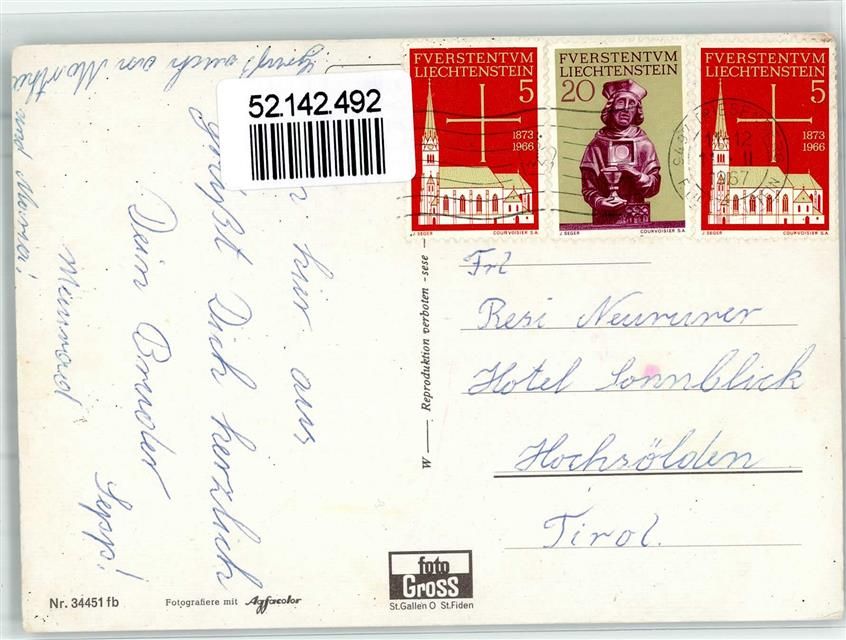 Gruß auch an Martha
und Maria!
52.142.492
hier aus,
grüßt Dich herzlich
Dein Bruder
Sepp!
Meinrad
FVERSTENTVM
LIECHTENSTEIN
5
1873
1966
J. SEGER COURVOISIER S.A.
FVERSTENTVM
LIECHTENSTEIN
20
J. SEGER COURVOISIER S.A.
FVERSTENTVM
LIECHTENSTEIN
5
1873
1966
J. SEGER COURVOISIER S.A.
Frl
Resi Neururer
Hotel Sonnblick
Hochsölden
Tirol.
W — Reproduktion verboten - sese —
foto
Gross
St.Gallen O St.Fiden
Nr. 34451 fb
Fotografiere mit Agfacolor